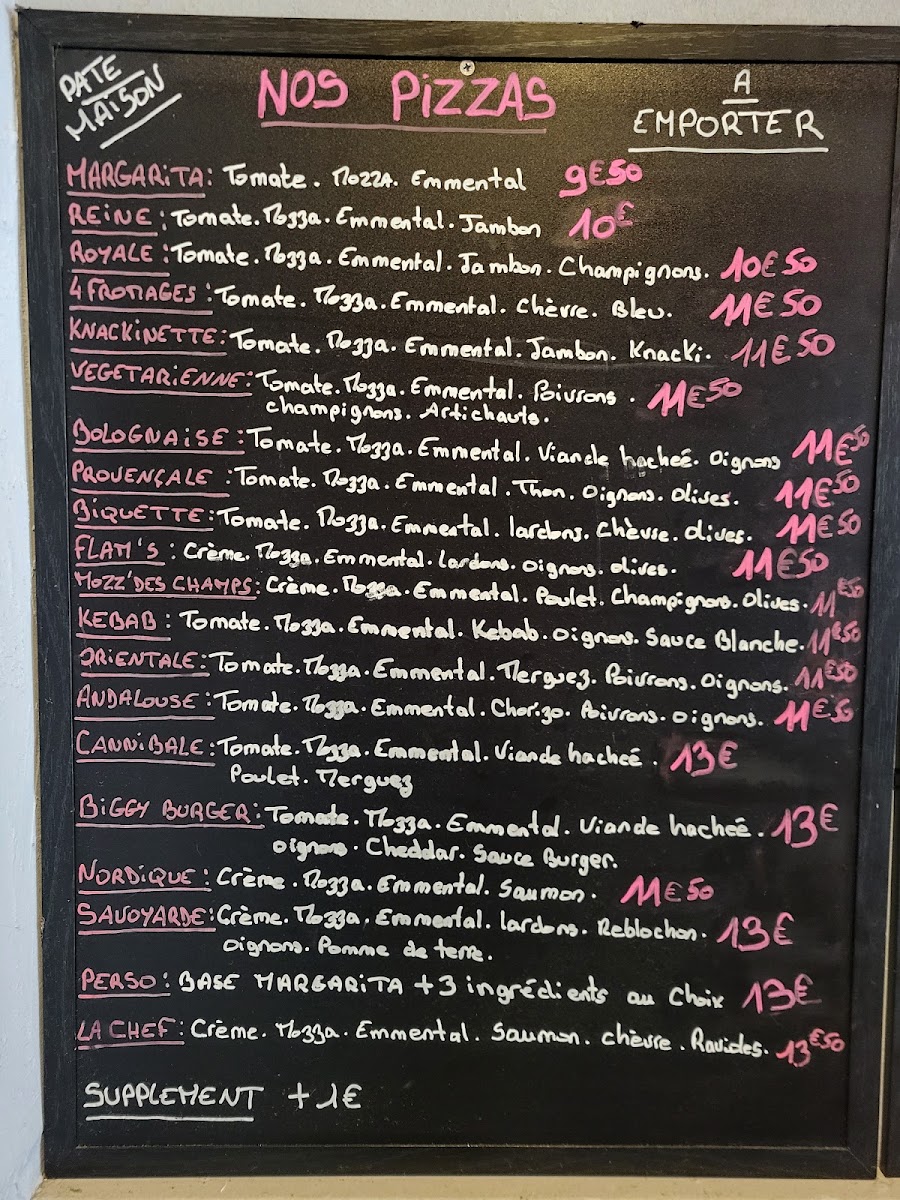 PATE
MAISON
NOS PIZZAS
A
EMPORTER
MARGARITA: Tomate. Mozza. Emmental 9€50
REINE: Tomate. Mozza. Emmental. Jambon 10€
ROYALE: Tomate. Mozza. Emmental. Jambon. Champignons. 10€50
4 FROMAGES: Tomate. Mozza. Emmental. Chèvre. Bleu. 11€50
KNACKINETTE: Tomate. Mozza. Emmental. Jambon. Knacki. 11€50
VEGETARIENNE: Tomate. Mozza. Emmental. Poivrons. 11€50
champignons. Artichauts.
BOLOGNAISE: Tomate. Mozza. Emmental. Viande hacheé. Oignons 11€50
PROVENÇALE: Tomate. Mozza. Emmental. Thon. Oignons. Olives. 11€50
BIQUETTE: Tomate. Mozza. Emmental. lardons. Chèvre. Olives. 11€50
FLAM'S: Crème. Mozza. Emmental. Lardons. Oignons. Olives. 11€50
MOZZ'DES CHAMPS: Crème. Mozza. Emmental. Poulet. Champignons. Olives. 11€50
KEBAB: Tomate. Mozza. Emmental. Kebab. Oignons. Sauce Blanche. 11€50
ORIENTALE: Tomate. Mozza. Emmental. Merguez. Poivrons. Oignons. 11€50
ANDALOUSE: Tomate. Mozza. Emmental. Chorizo. Poivrons. Oignons. 11€50
CANNIBALE: Tomate. Mozza. Emmental. Viande hacheé. 13€
Poulet. Merguez
BIGGY BURGER: Tomate. Mozza. Emmental. Viande hacheé. 13€
Oignons. Cheddar. Sauce Burger.
NORDIQUE: Crème. Mozza. Emmental. Saumon. 11€50
SAVOYARDE: Crème. Mozza. Emmental. lardons. Reblochon. 13€
Oignons. Pomme de terre.
PERSO: BASE MARGARITA + 3 ingrédients au Choix 13€
LA CHEF: Crème. Mozza. Emmental. Saumon. chèvre. Ravioles. 13€50
SUPPLEMENT + 1€